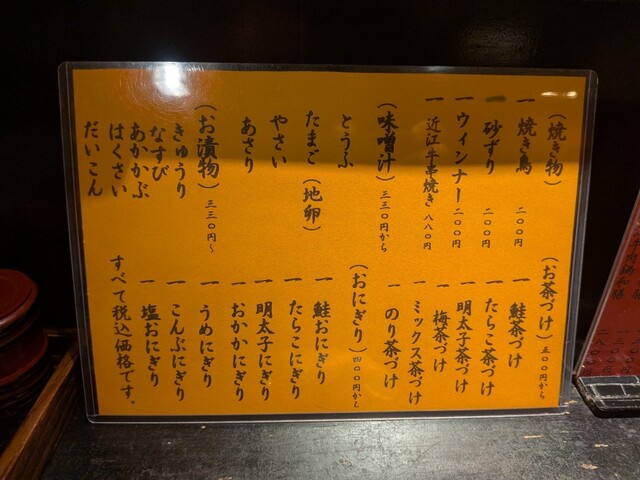 (焼き物)
一 焼き鳥 二〇〇円
一 砂ずり 二〇〇円
一 ウィンナー 二〇〇円
一 近江牛串焼き 八八〇円
(味噌汁) 三三〇円から
とうふ
たまご (地卵)
やさい
あさり
(お漬物) 三三〇円~
きゅうり
なすび
あかかぶ
はくさい
だいこん
(お茶づけ) 五〇〇円から
一 鮭茶づけ
一 たらこ茶づけ
一 明太子茶づけ
一 梅茶づけ
一 ミックス茶づけ
一 のり茶づけ
(おにぎり) 四〇〇円から
一 鮭おにぎり
一 たらこにぎり
一 明太子にぎり
一 おかかにぎり
一 うめにぎり
一 こんぶにぎり
一 塩おにぎり
すべて税込価格です。